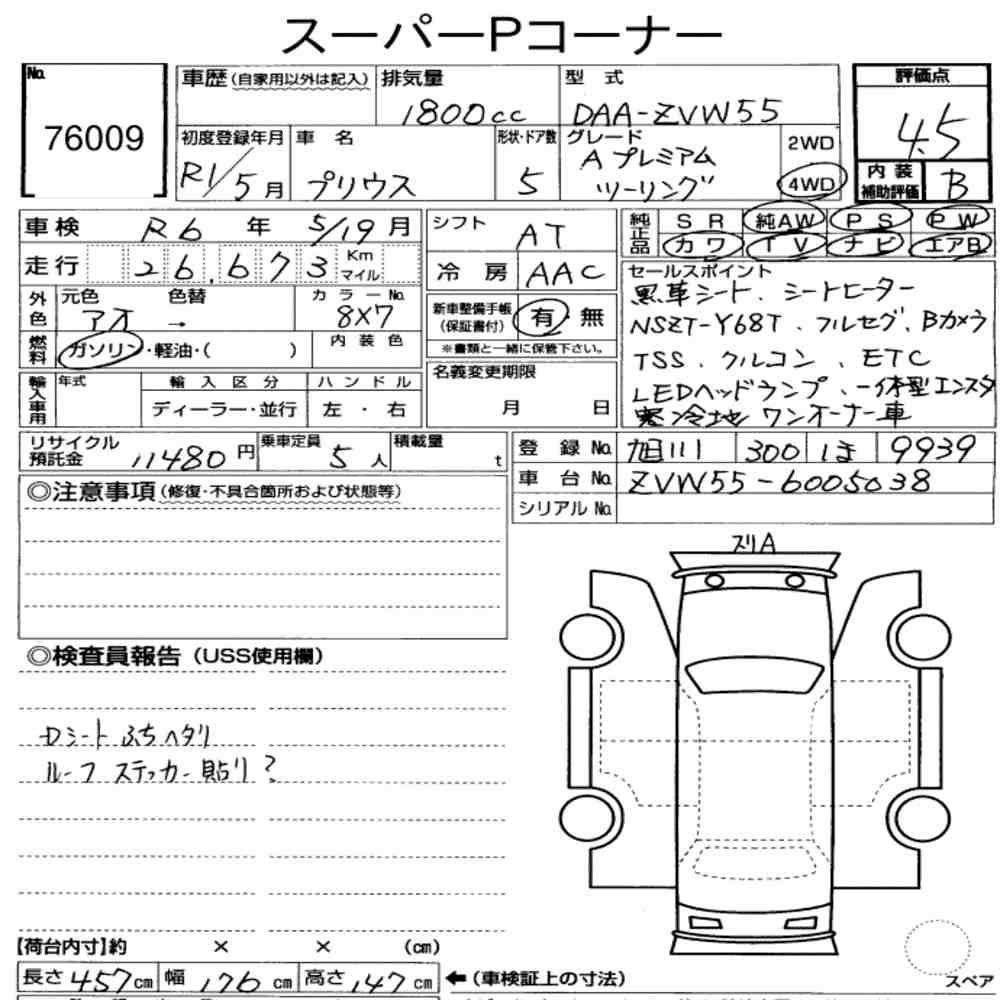 スーパーPコーナー
No. 76009
車歴(自家用以外は記入) 排気量 1800cc 型式 DAA-ZVW55 評価点 4.5
初度登録年月 R1/5月 車名 プリウス 形状・ドア数 5 グレード Aプレミアム ツーリング 2WD 4WD 内装補助評価 B
車検 R6年 5/19月 シフト AT 純正品 SR 純AW PS PW
カワ TV ナビ エアB
走行 26,673 Km マイル 冷房 AAC
外色 元色 アオ 色替 → カラーNo. 8X7 新車整備手帳(保証書付) 有・無
※書類と一緒に保管下さい。
燃料 ガソリン・軽油・( ) 内装色
輸入車用 年式 輸入区分 ディーラー・並行 ハンドル 左・右 名義変更期限 月 日
セールスポイント
黒革シート、シートヒーター
NSZT-Y68T、フルセグ、Bカメラ
TSS、クルコン、ETC
LEDヘッドランプ、一体型エンスタ
寒冷地 ワンオーナー車
リサイクル預託金 11480円 乗車定員 5人 積載量 t
登録No. 旭川 300 ほ 9939
車台No. ZVW55-6005038
シリアルNo.
◎注意事項(修復・不具合箇所および状態等)
◎検査員報告(USS使用欄)
Dシート ふちヘタリ
ルーフ ステッカー貼り?
スリA
【荷台内寸】約 × × (cm)
長さ 457cm 幅 176cm 高さ 147cm ←(車検証上の寸法)
スペア